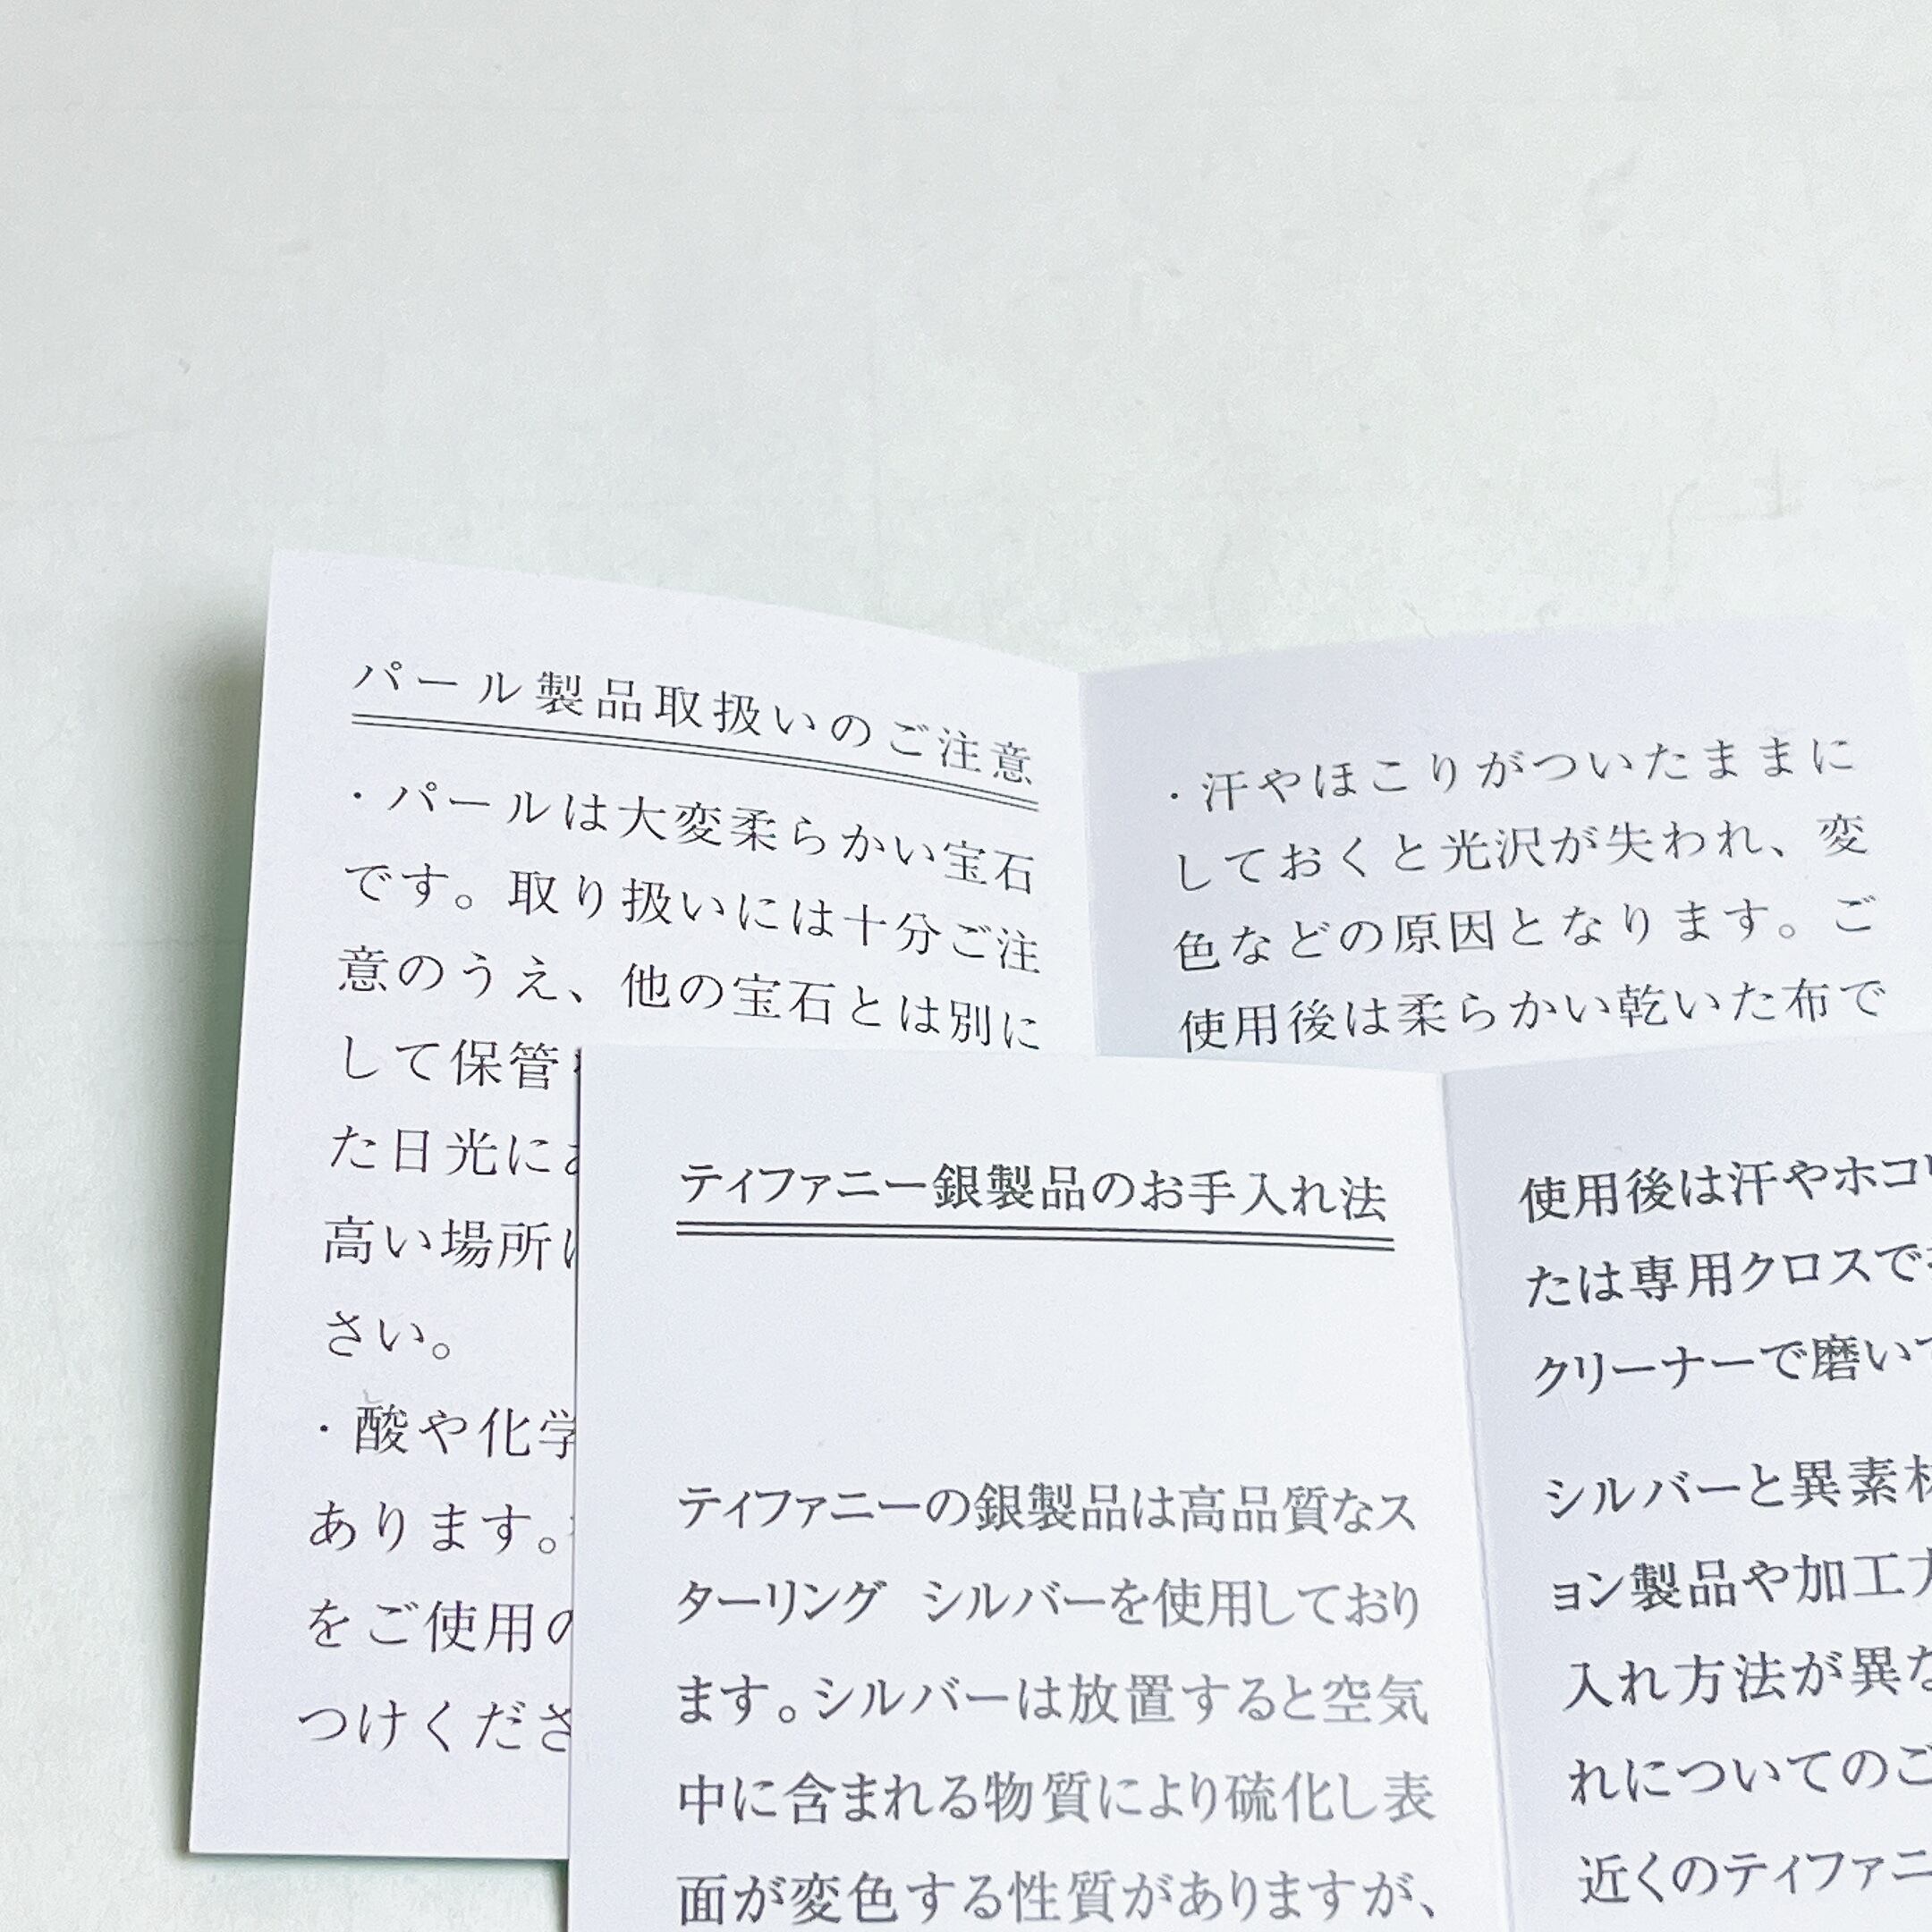 パール製品取扱いのご注意
・パールは大変柔らかい宝石
です。取り扱いには十分ご注
意のうえ、他の宝石とは別に
して保管
た日光に
高い場所
さい。
・酸や化学
あります。
をご使用の
つけくださ
・汗やほこりがついたままに
しておくと光沢が失われ、変
色などの原因となります。ご
使用後は柔らかい乾いた布で
ティファニー銀製品のお手入れ法
ティファニーの銀製品は高品質なス
ターリング シルバーを使用しており
ます。シルバーは放置すると空気
中に含まれる物質により硫化し表
面が変色する性質がありますが、
使用後は汗やホコリ
たは専用クロスで
クリーナーで磨いて
シルバーと異素材
ョン製品や加工方
入れ方法が異な
れについてのご
近くのティファニ